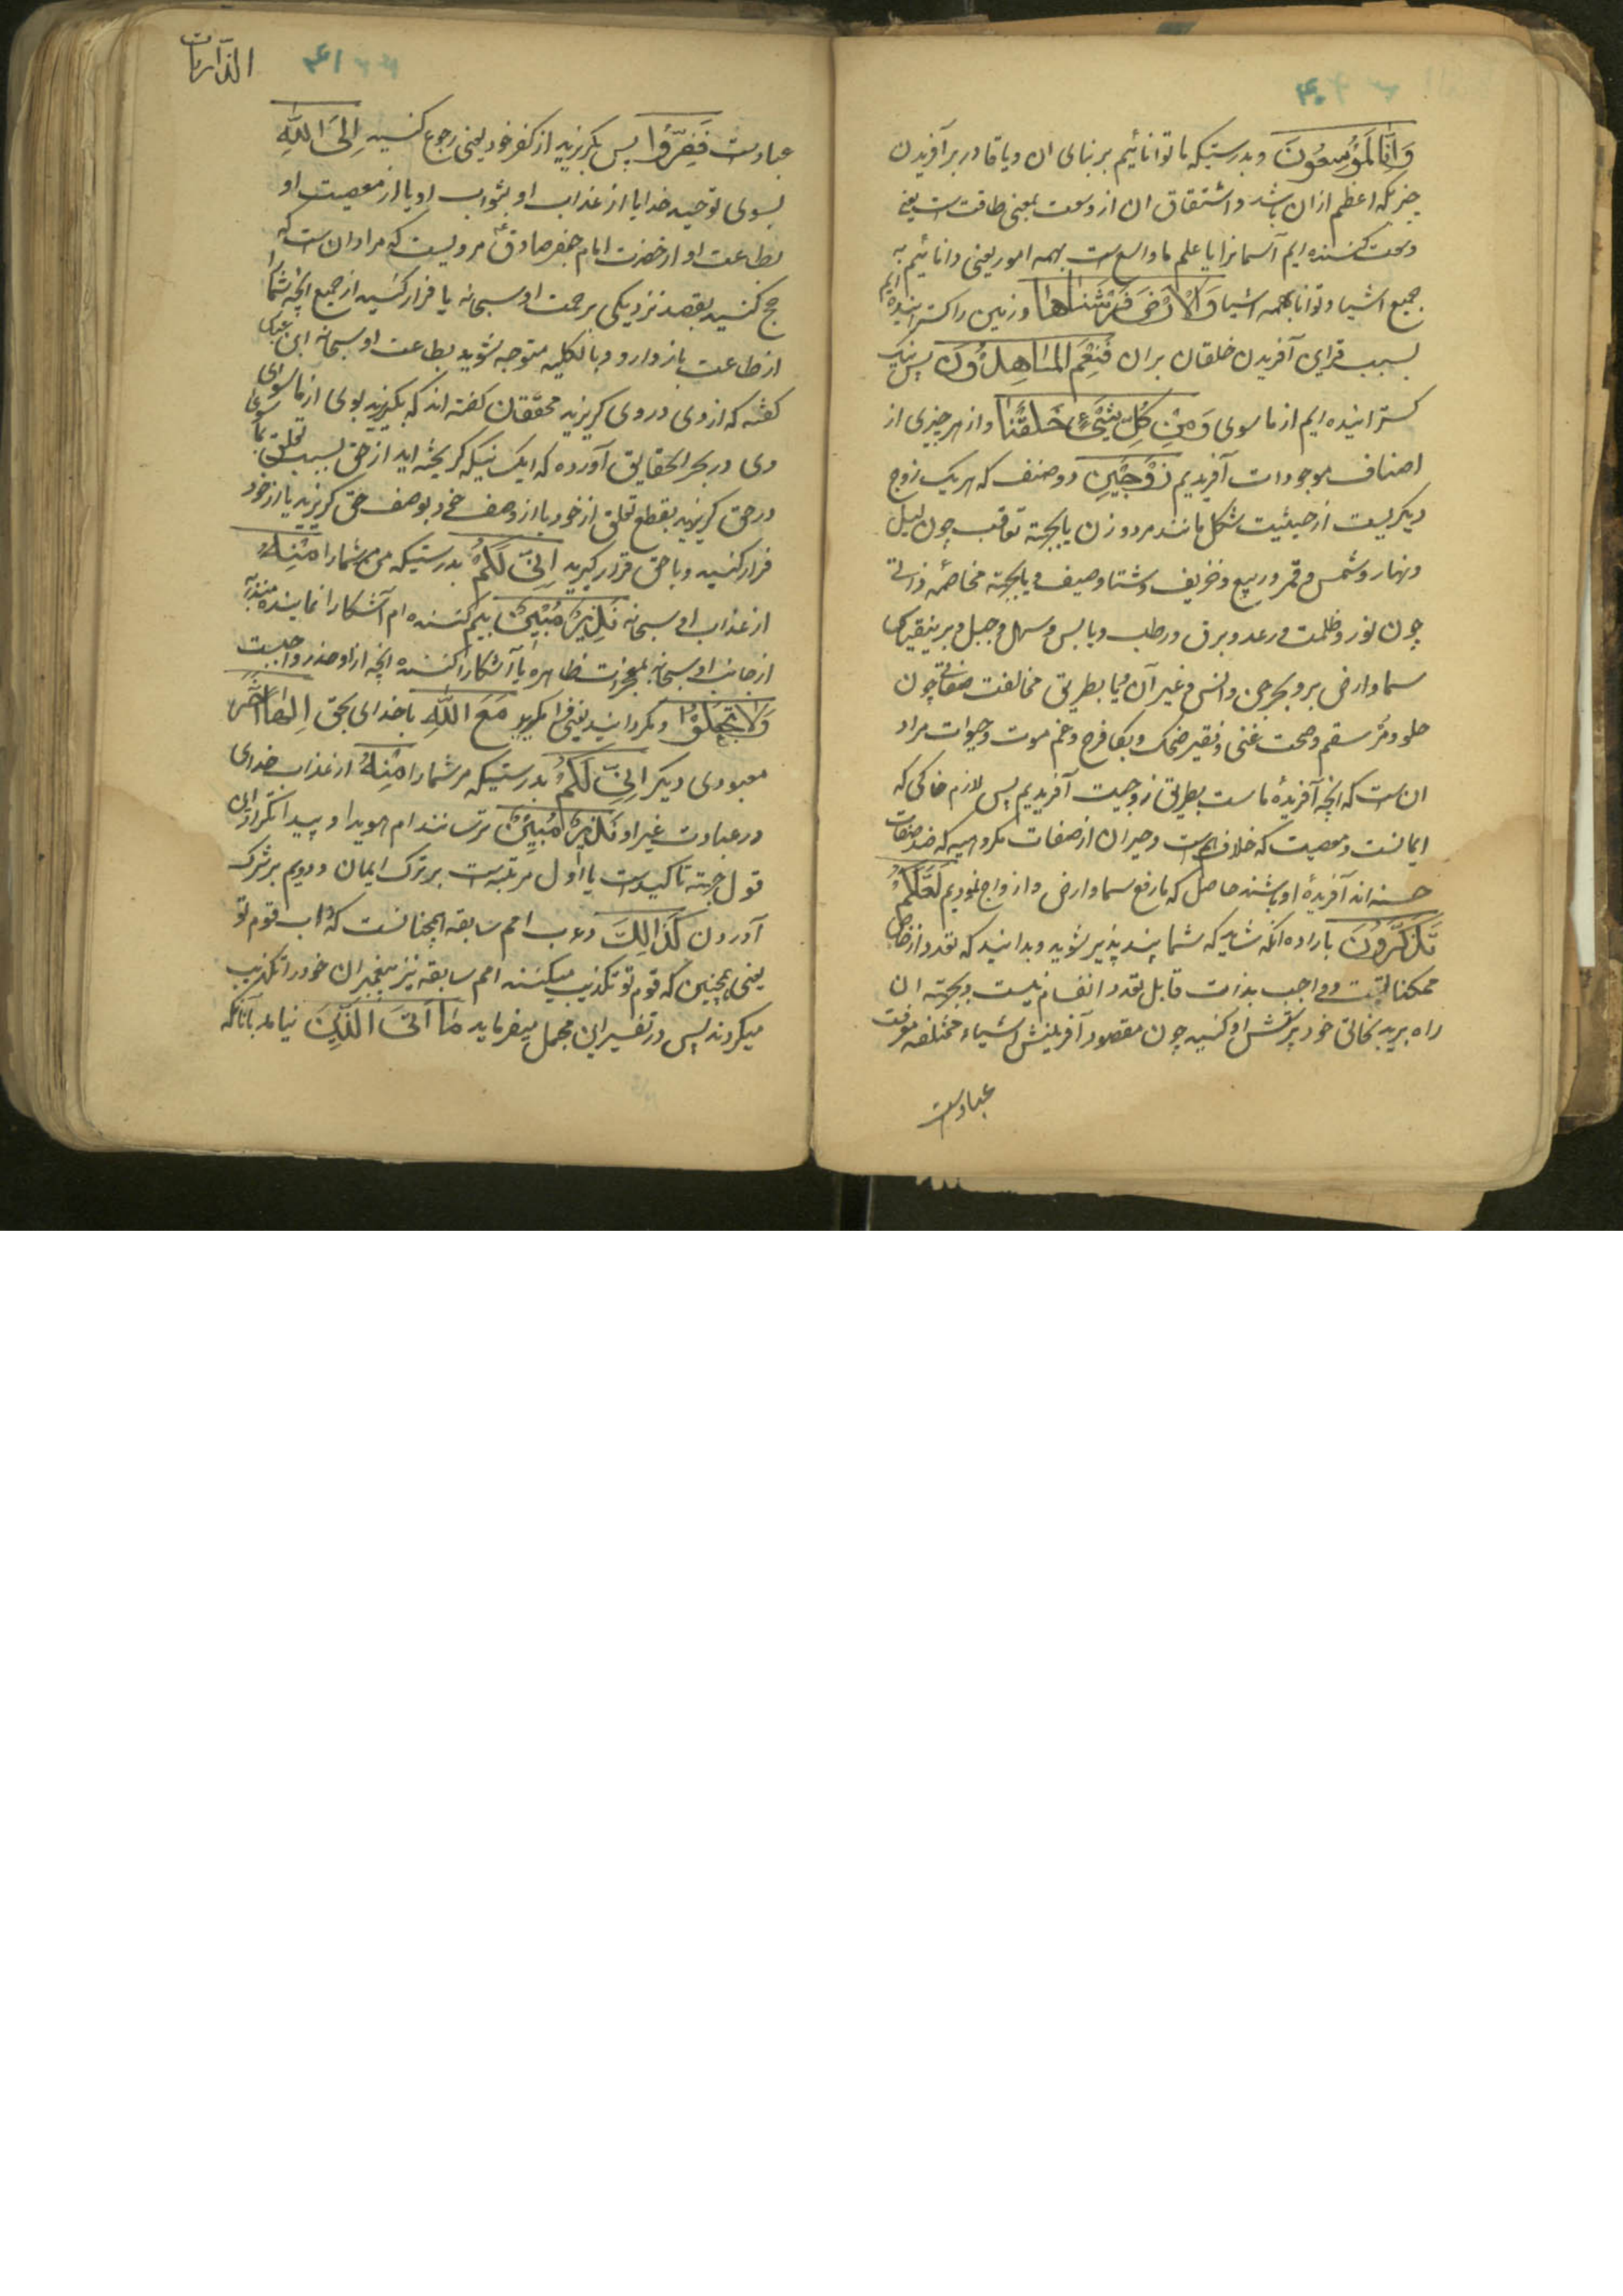 ۴۰
وَاِنَّا لَمُوْسِعُونَ وبدرستیکه ما توانائیم بر بنای ان ویا قادر بر آفریدن
چیزیکه اعظم از ان باشد واشتقاق ان از وسعت بمعنی طاقت است یعنی
وسعت کننده ایم آسمانرا یا علم ما واسع است بهمه امور یعنی دانائیم به
جمیع اشیا وتوانا بهمه اشیا وَالْاَرْضَ فَرَشْنَاهَا وزمین را کسترانیده ایم
بسبب قرای آفریدن خلقان بران فَنِعْمَ الْمَاهِدُونَ پس نیک
کسترانیده ایم از ما سوی وَمِنْ كُلِّ شَیْءٍ خَلَقْنَا واز هر چیزی از
اصناف موجودات آفریدیم زَوْجَیْنِ دو صنف که هر یک زوج
دیکریست از حیثیت شکل مانند مرد وزن یا بجهته تعاقب چون لیل
ونهار وشمس وقمر وربیع وخریف وشتا وصیف ویا بجهته مخاصمه ذاتی
چون نور وظلمت ورعد وبرق ورطب ویابس وسهل وجبل وبرینقیاس
سما وارض بر وبحر جن وانس وغیر آن ویا بطریق مخالفت صفاتی چون
حلو ومر سقم وصحت غنی وفقیر ضحک وبکا فرح وغم موت وحیوات مراد
ان است که انچه آفریدهٔ ماست بطریق زوجیت آفریدیم پس لازم خاکی که
ایمانست ومعصیت که خلاف است وجبران از صفات مکروهیه که ضد صفات
حسنه اند آفریدهٔ او باشند حاصل که ما رفع سما وارض وازواج نمودیم لَعَلَّكُمْ
تَذَكَّرُونَ باراده انکه شاید که شما پند پذیر شوید وبدانید که تعدد از خاص
ممکناتست وواجب بذات قابل تعدد وانقسام نیست وبجهته ان
راه برید بخالق خود پرستش او کنید چون مقصود آفرینش اشیاء مختلفه معرفت
عبادت
الذاریات
۴۱
عبادت فَفِرُّوْا پس بکریزید از کفر خود یعنی رجوع کنید اِلَى اللّٰهِ
بسوی توحید خدا یا از عذاب او بثواب او یا از معصیت او
بطاعت او از حضرت امام جعفر صادق مرویست که مراد ان است که
حج کنید بقصد نزدیکی برحمت او سبحانه یا فرار کنید از جمیع انچه شما را
از طاعت باز دارد وبالکلیه متوجه شوید بطاعت او سبحانه ابن عباس
کفته که از وی در وی کریزید محققان کفته اند که بکریزید بوی از ما سوای
وی در بحر الحقایق آورده که ایک نیکه کریخته اید از حق بسبب تعلق بما سوی
در حق کریزید بقطع تعلق از خود یا از وصف خود بوصف حق کریزید یا از خود
فرار کنید وبا حق قرار کیرید اِنِّیْ لَكُمْ بدرستیکه من مر شما را مِنْهُ
از عذاب او سبحانه نَذِیرٌ مُبِیْنٌ بیم کننده ام آشکارا نماینده
از جانب او سبحانه بمعجزات ظاهره یا آشکارا کننده انچه از او حذر واجبست
وَلَا تَجْعَلُوْا ومکردانید یعنی فرا مکیرید مَعَ اللّٰهِ با خدای بحق اِلٰهًا اٰخَرَ
معبودی دیکر اِنِّیْ لَكُمْ بدرستیکه مر شما را مِنْهُ از عذاب خدای
در عبادت غیر او نَذِیرٌ مُبِیْنٌ ترسانند ام هویدا وپیدا تکرار این
قول جهته تاکیدست یا اول مرتبست بر ترک ایمان ودویم بر شرک
آوردن كَذٰلِكَ دءب امم سابقه همچنانست که داب قوم تو
یعنی همچنین که قوم تو تکذیب میکنند امم سابقه نیز پیغمبران خود را تکذیب
میکردند پس در تفسیر این مجمل میفرماید مَا اَتَى الَّذِیْنَ نیامد بآنانکه